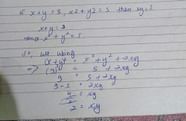 if x+y=3, x2+y2=5 then xy=?
x+y=3
x²+y²=5
So, let using
(x+y)² = x²+y²+2xy
⇒ (3)² = 5+2xy
9 = 5+2xy
9-5 = 2xy
4/2 = xy
2 = xy